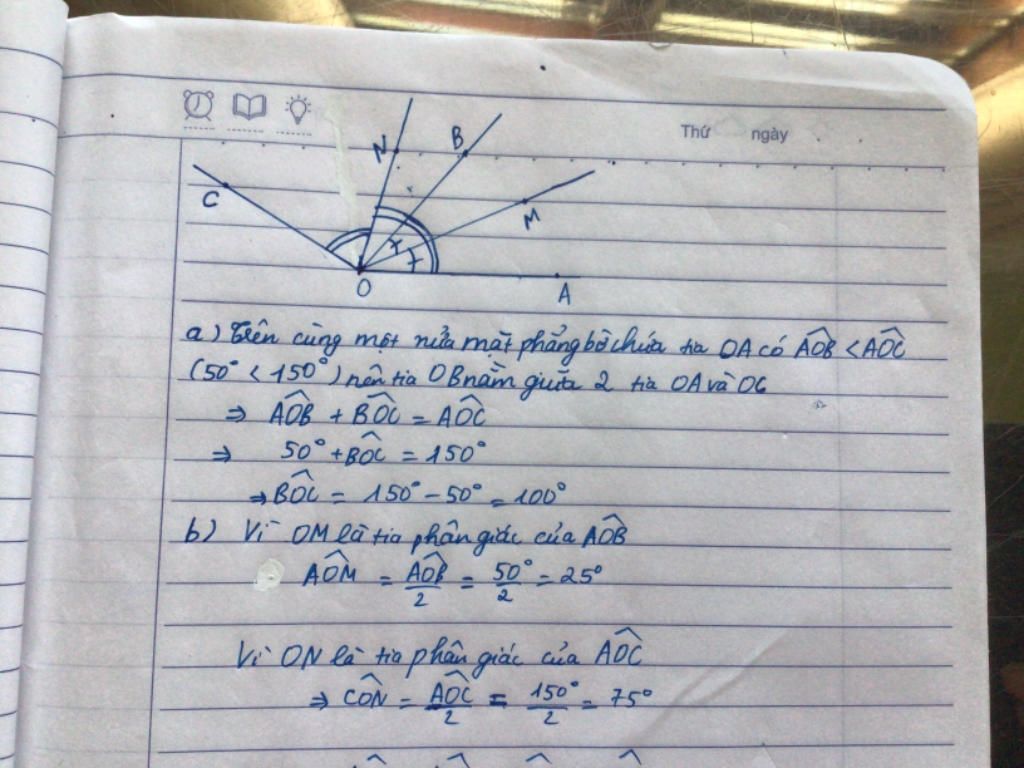 Thứ ngày
N
B
C
M
O
A
a) Trên cùng một nửa mặt phẳng bờ chứa tia OA có AOB̂ < AOĈ
(50° < 150°) nên tia OB nằm giữa 2 tia OA và OC
⇒ AÔB + BÔC = AÔC
⇒ 50° + BÔC = 150°
⇒ BÔC = 150° - 50° = 100°
b) Vì OM là tia phân giác của AÔB
AÔM = AÔB/2 = 50°/2 = 25°
Vì ON là tia phân giác của AÔC
⇒ CÔN = AÔC/2 = 150°/2 = 75°